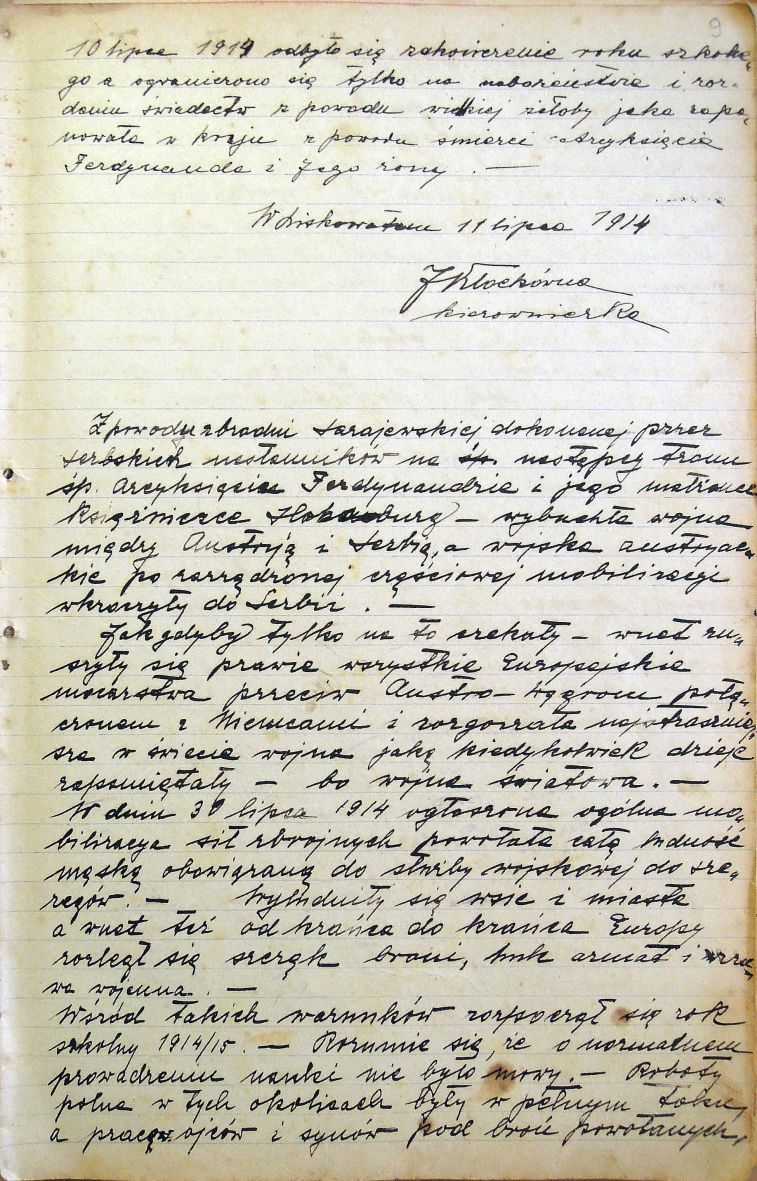 9
10 lipca 1914 odbyło się zakończenie roku szkolne„
go a ograniczono się tylko na nabożeństwie i roz-
daniu świadectw z powodu wielkiej żałoby jaka zapa„
nowała w kraju z powodu śmierci Arcyksięcia
Ferdynanda i Jego żony. —
W Liskowatem 11 lipca 1914
J Kłockówna
kierowniczka
Z powodu zbrodni sarajewskiej dokonanej przez
serbskich nasłanników na śp. następcy tronu
śp. arcyksięciu Ferdynandzie i jego małżonce
księżniczce Hohenburg – wybuchła wojna
między Austryją i Serbią, a wojska austryac„
kie po zarządzonej częściowej mobilizacyi
wkroczyły do Serbii. —
Jak gdyby tylko na to czekały – wnet ru„
szyły się prawie wszystkie Europejskie
mocarstwa przeciw Austro-Węgrom połą„
czonem z Niemcami i rozgorzała najstraszniej„
sza w świecie wojna jaką kiedykolwiek dzieje
zapamiętały – bo wojna światowa. —
W dniu 30 lipca 1914 ogłoszona ogólna mo„
bilizacya sił zbrojnych powołała całą ludność
męską obowiązaną do służby wojskowej do sze„
regów. — Wyludniły się wsie i miasta
a wnet też od krańca do krańca Europy
rozległ się szczęk broni, huk armat i wrza„
wa wojenna. —
Wśród takich warunków rozpoczął się rok
szkolny 1914/15. — Rozumie się, że o normalnem
prowadzeniu nauki nie było mowy. — Roboty
polne w tych okolicach były w pełnym toku,
a pracę ojców i synów pod broń powołanych,